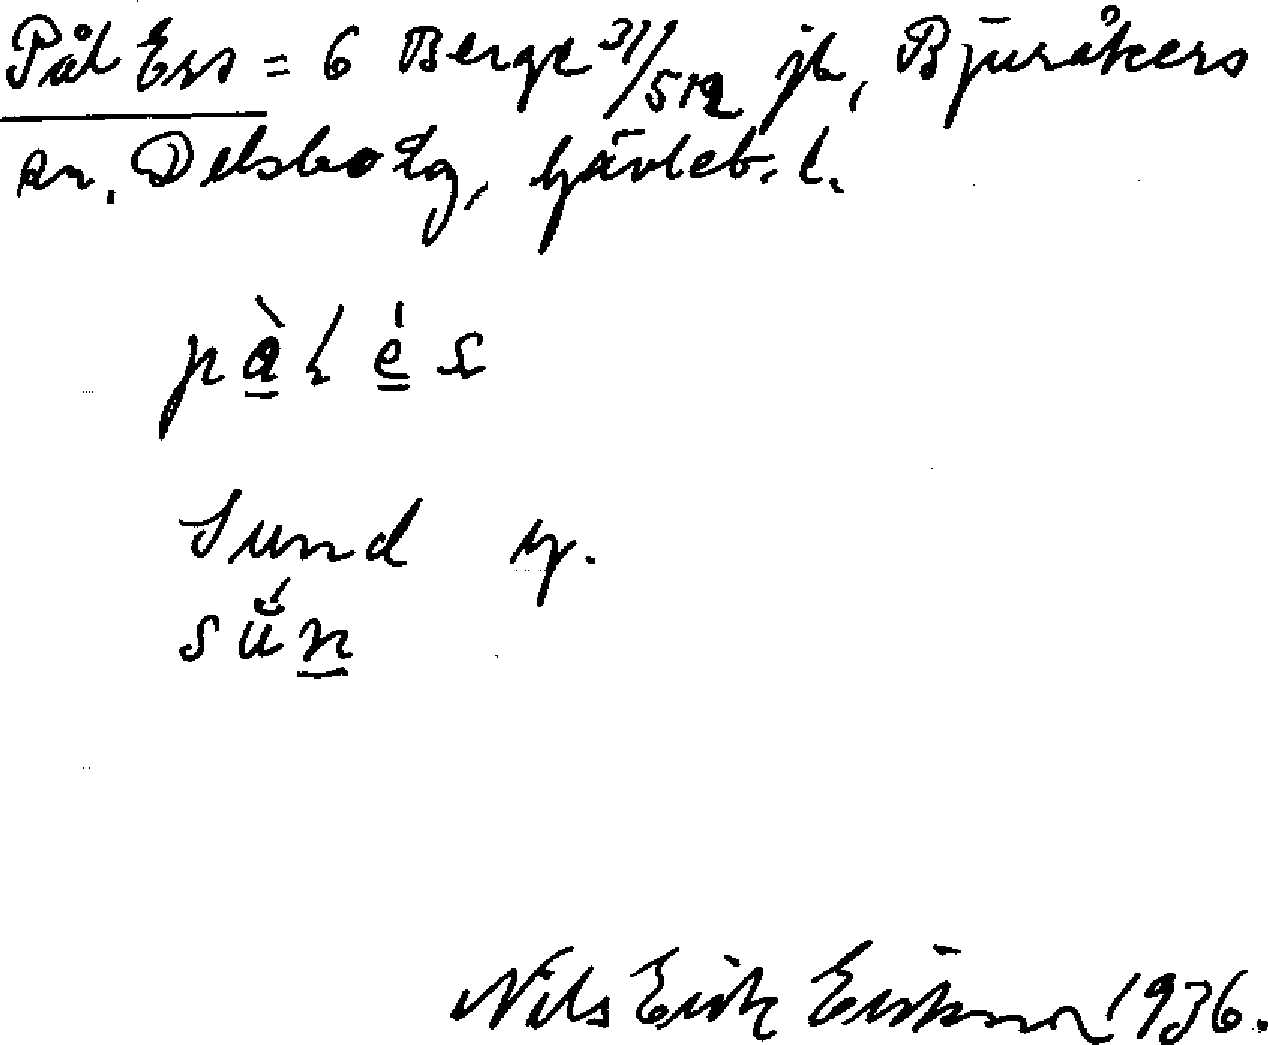 Pål Ers = 6 Berge 31/512 jb, Bjuråkers
sn. Delsbo tg, Gävleb. l.
pàlés
Sund g.
sŭ́n
Nils Erik Eriksson 1936.